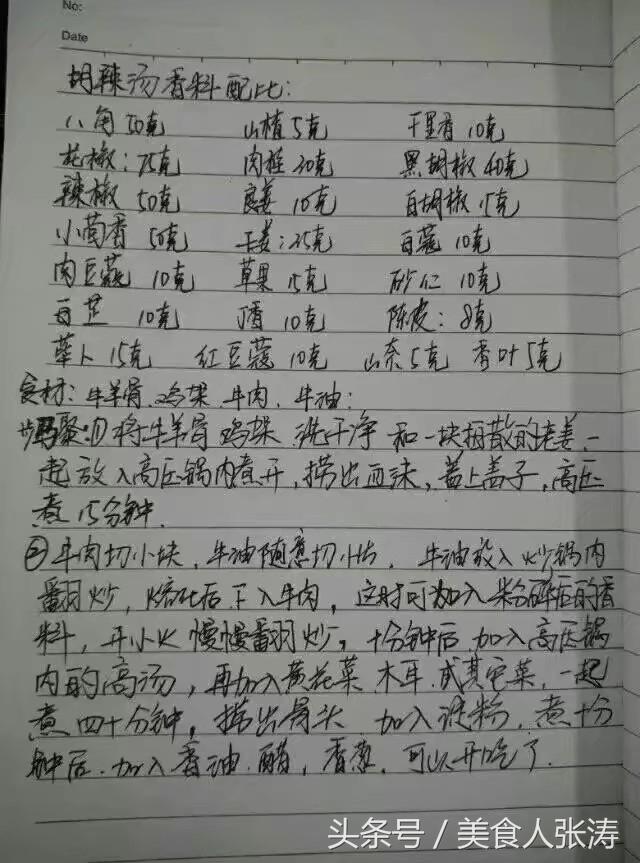 No:
Date
胡辣汤香料配比:
八角 50克 山楂 5克 千里香 10克
花椒:75克 肉桂 30克 黑胡椒 40克
辣椒 50克 良姜 10克 白胡椒 15克
小茴香 50克 干姜:25克 白蔻 10克
肉豆蔻 10克 草果 15克 砂仁 10克
白芷 10克 丁香 10克 陈皮:8克
荜卜 15克 红豆蔻 10克 山奈 5克 香叶 5克
食材:牛羊骨、鸡架、牛肉、牛油:
步骤:①将牛羊骨 鸡架 洗干净 和一块拍散的老姜一
起放入高压锅内煮开,捞出血沫,盖上盖子,高压
煮15分钟.
②牛肉切小块,牛油随意切小片,牛油放入炒锅内
翻炒,熔化后下入牛肉,这时可加入粉碎后的香
料,开小火慢慢翻炒,十分钟后加入高压锅
内的高汤,再加入黄花菜、木耳、或其它菜,一起
煮四十分钟,捞出骨头 加入淀粉,煮十分
钟后.加入香油.醋,香葱.可以开吃了.
头条号 / 美食人张涛